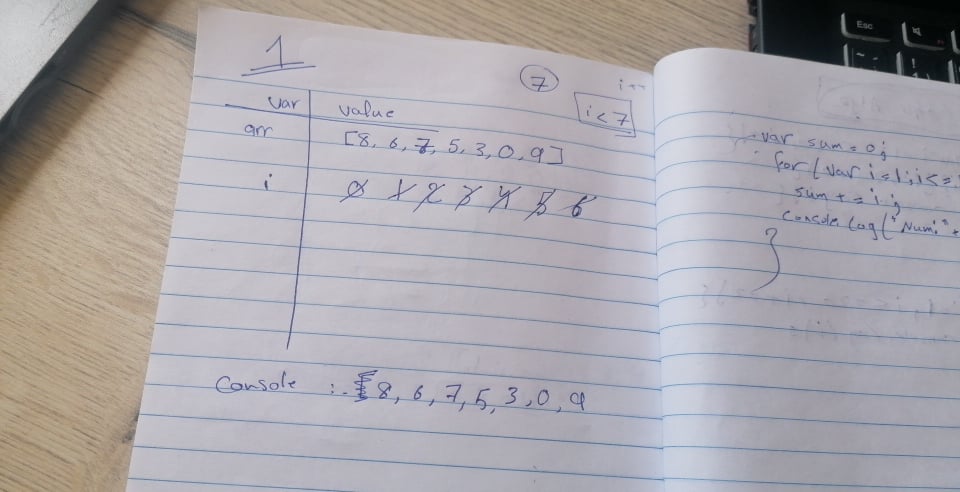 1
7
i<7
var value
arr [8, 6, 7, 5, 3, 0, 9]
i 0 1 2 3 4 5 6
Console :. 8, 6, 7, 5, 3, 0, 9
var sum = 0;
for (var i=1; i<=
sum += i;
console log("Num:" +
}
Esc